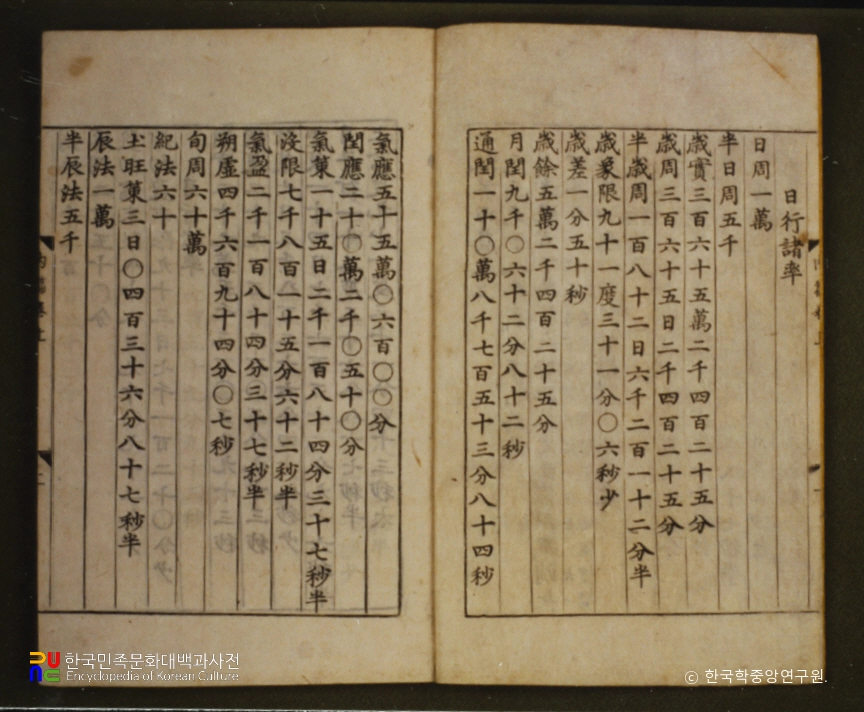 日行諸率
日周一萬
半日周五千
歲實三百六十五萬二千四百二十五分
歲周三百六十五日二千四百二十五分
半歲周一百八十二日六千二百一十二分半
歲象限九十一度三十一分〇六秒少
歲差一分五十秒
歲餘五萬二千四百二十五分
月閏九千〇六十二分八十二秒
通閏一十〇萬八千七百五十三分八十四秒
氣應五十五萬〇六百〇〇分
閏應二十〇萬二千〇五十〇分
氣策一十五日二千一百八十四分三十七秒半
沒限七千八百一十五分六十二秒半
氣盈二千一百八十四分三十七秒半
朔虛四千六百九十四分〇七秒
旬周六十萬
紀法六十
土旺策三日〇四百三十六分八十七秒半
辰法一萬
半辰法五千
한국민족문화대백과사전
Encyclopedia of Korean Culture
ⓒ 한국학중앙연구원.